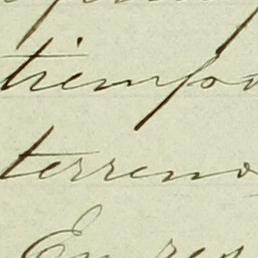 tiempo
terreno
En res